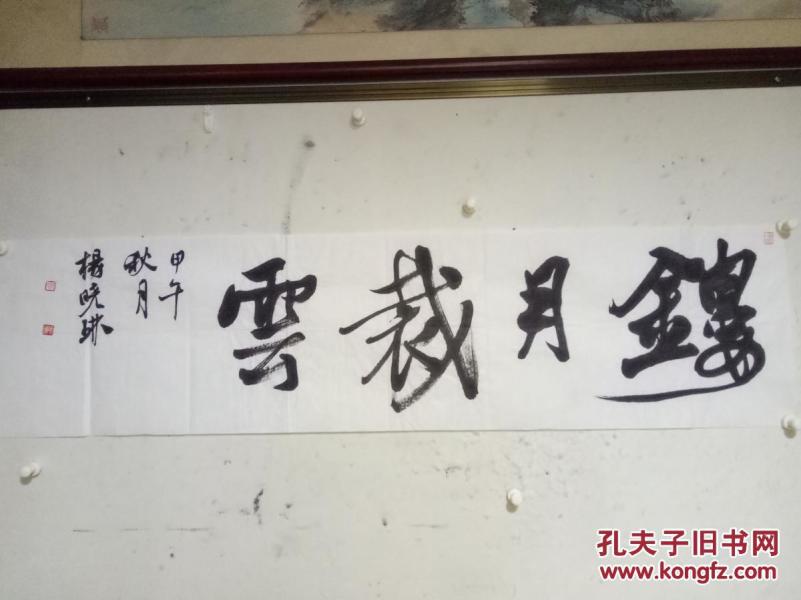 鏤月裁雲
甲午
秋月
楊曉琳
孔夫子旧书网
www.kongfz.com